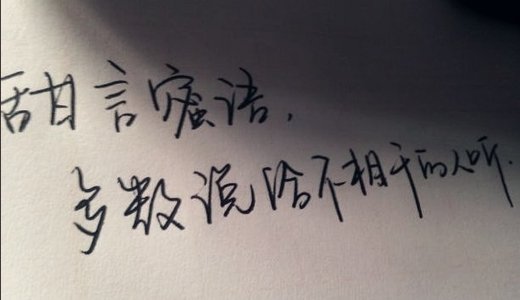 甜言蜜语，
多数说给不相干的人听.